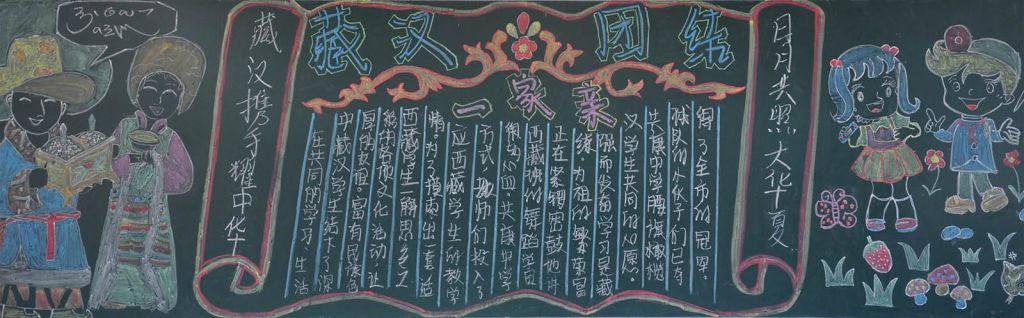 藏汉团结
一家亲
藏汉携手耀中华
在共同的学习、生活
中藏汉学生结下了深
厚的友谊。富有民族色
彩的各项文化活动让
西藏学生一解思乡之
情。为了摸索出一套适
应西藏学生的教学
方式，教师们投入了
很多心血。共康中学
西藏班的舞蹈学员
正在紧锣密鼓地排
练，为祖国繁荣富
强而发奋学习是藏
汉学生共同的心愿。
共康中学腰旗橄榄
球队的小伙子们已夺
得了全市的冠军。
日月共照大华夏